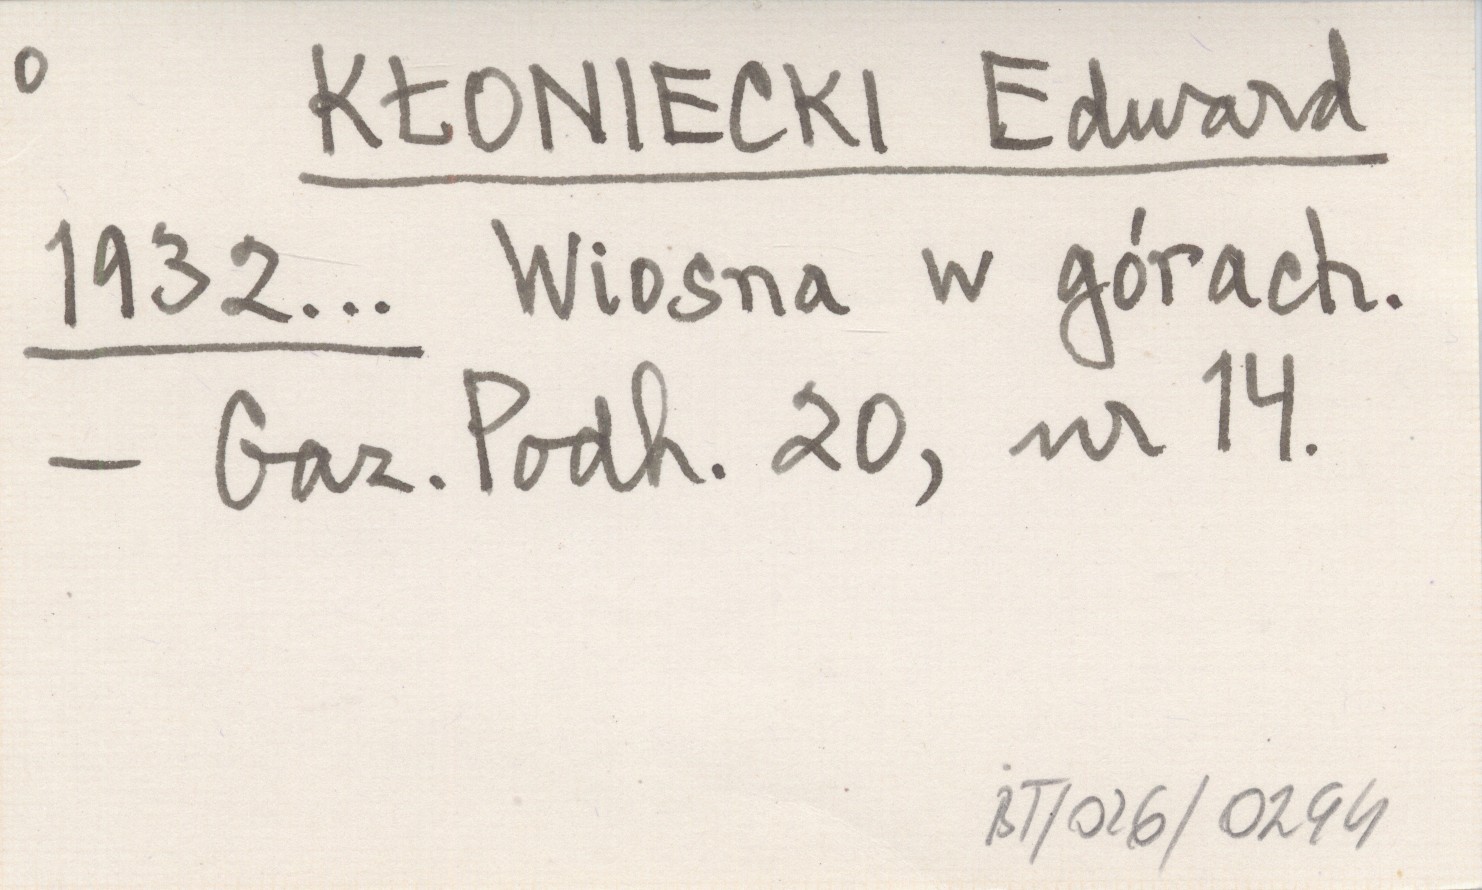 o KŁONIECKI Edward
1932... Wiosna w górach.
— Gaz. Podh. 20, nr 14.
BT/026/0294